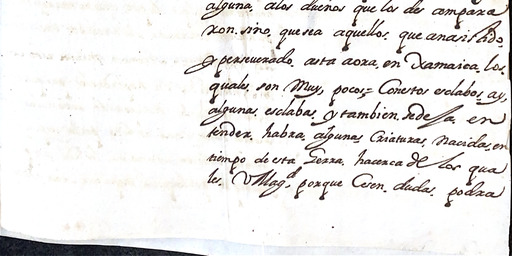 alguna, alos dueños que los des ampara
ron. sino, que sea aquellos, que an asistido,
y perseverado, asta aora, en Xamaica, los
quales, son Muy, pocos,= Conestos esclabos, ay,
algunas, esclabas, y tambien, sede sa, en
tender, habra, algunas, Criaturas, Nacidas, en
tiempo de esta, Gerra, hacerca de los qua
les, V Magd, porque Cesen, dudas, podra